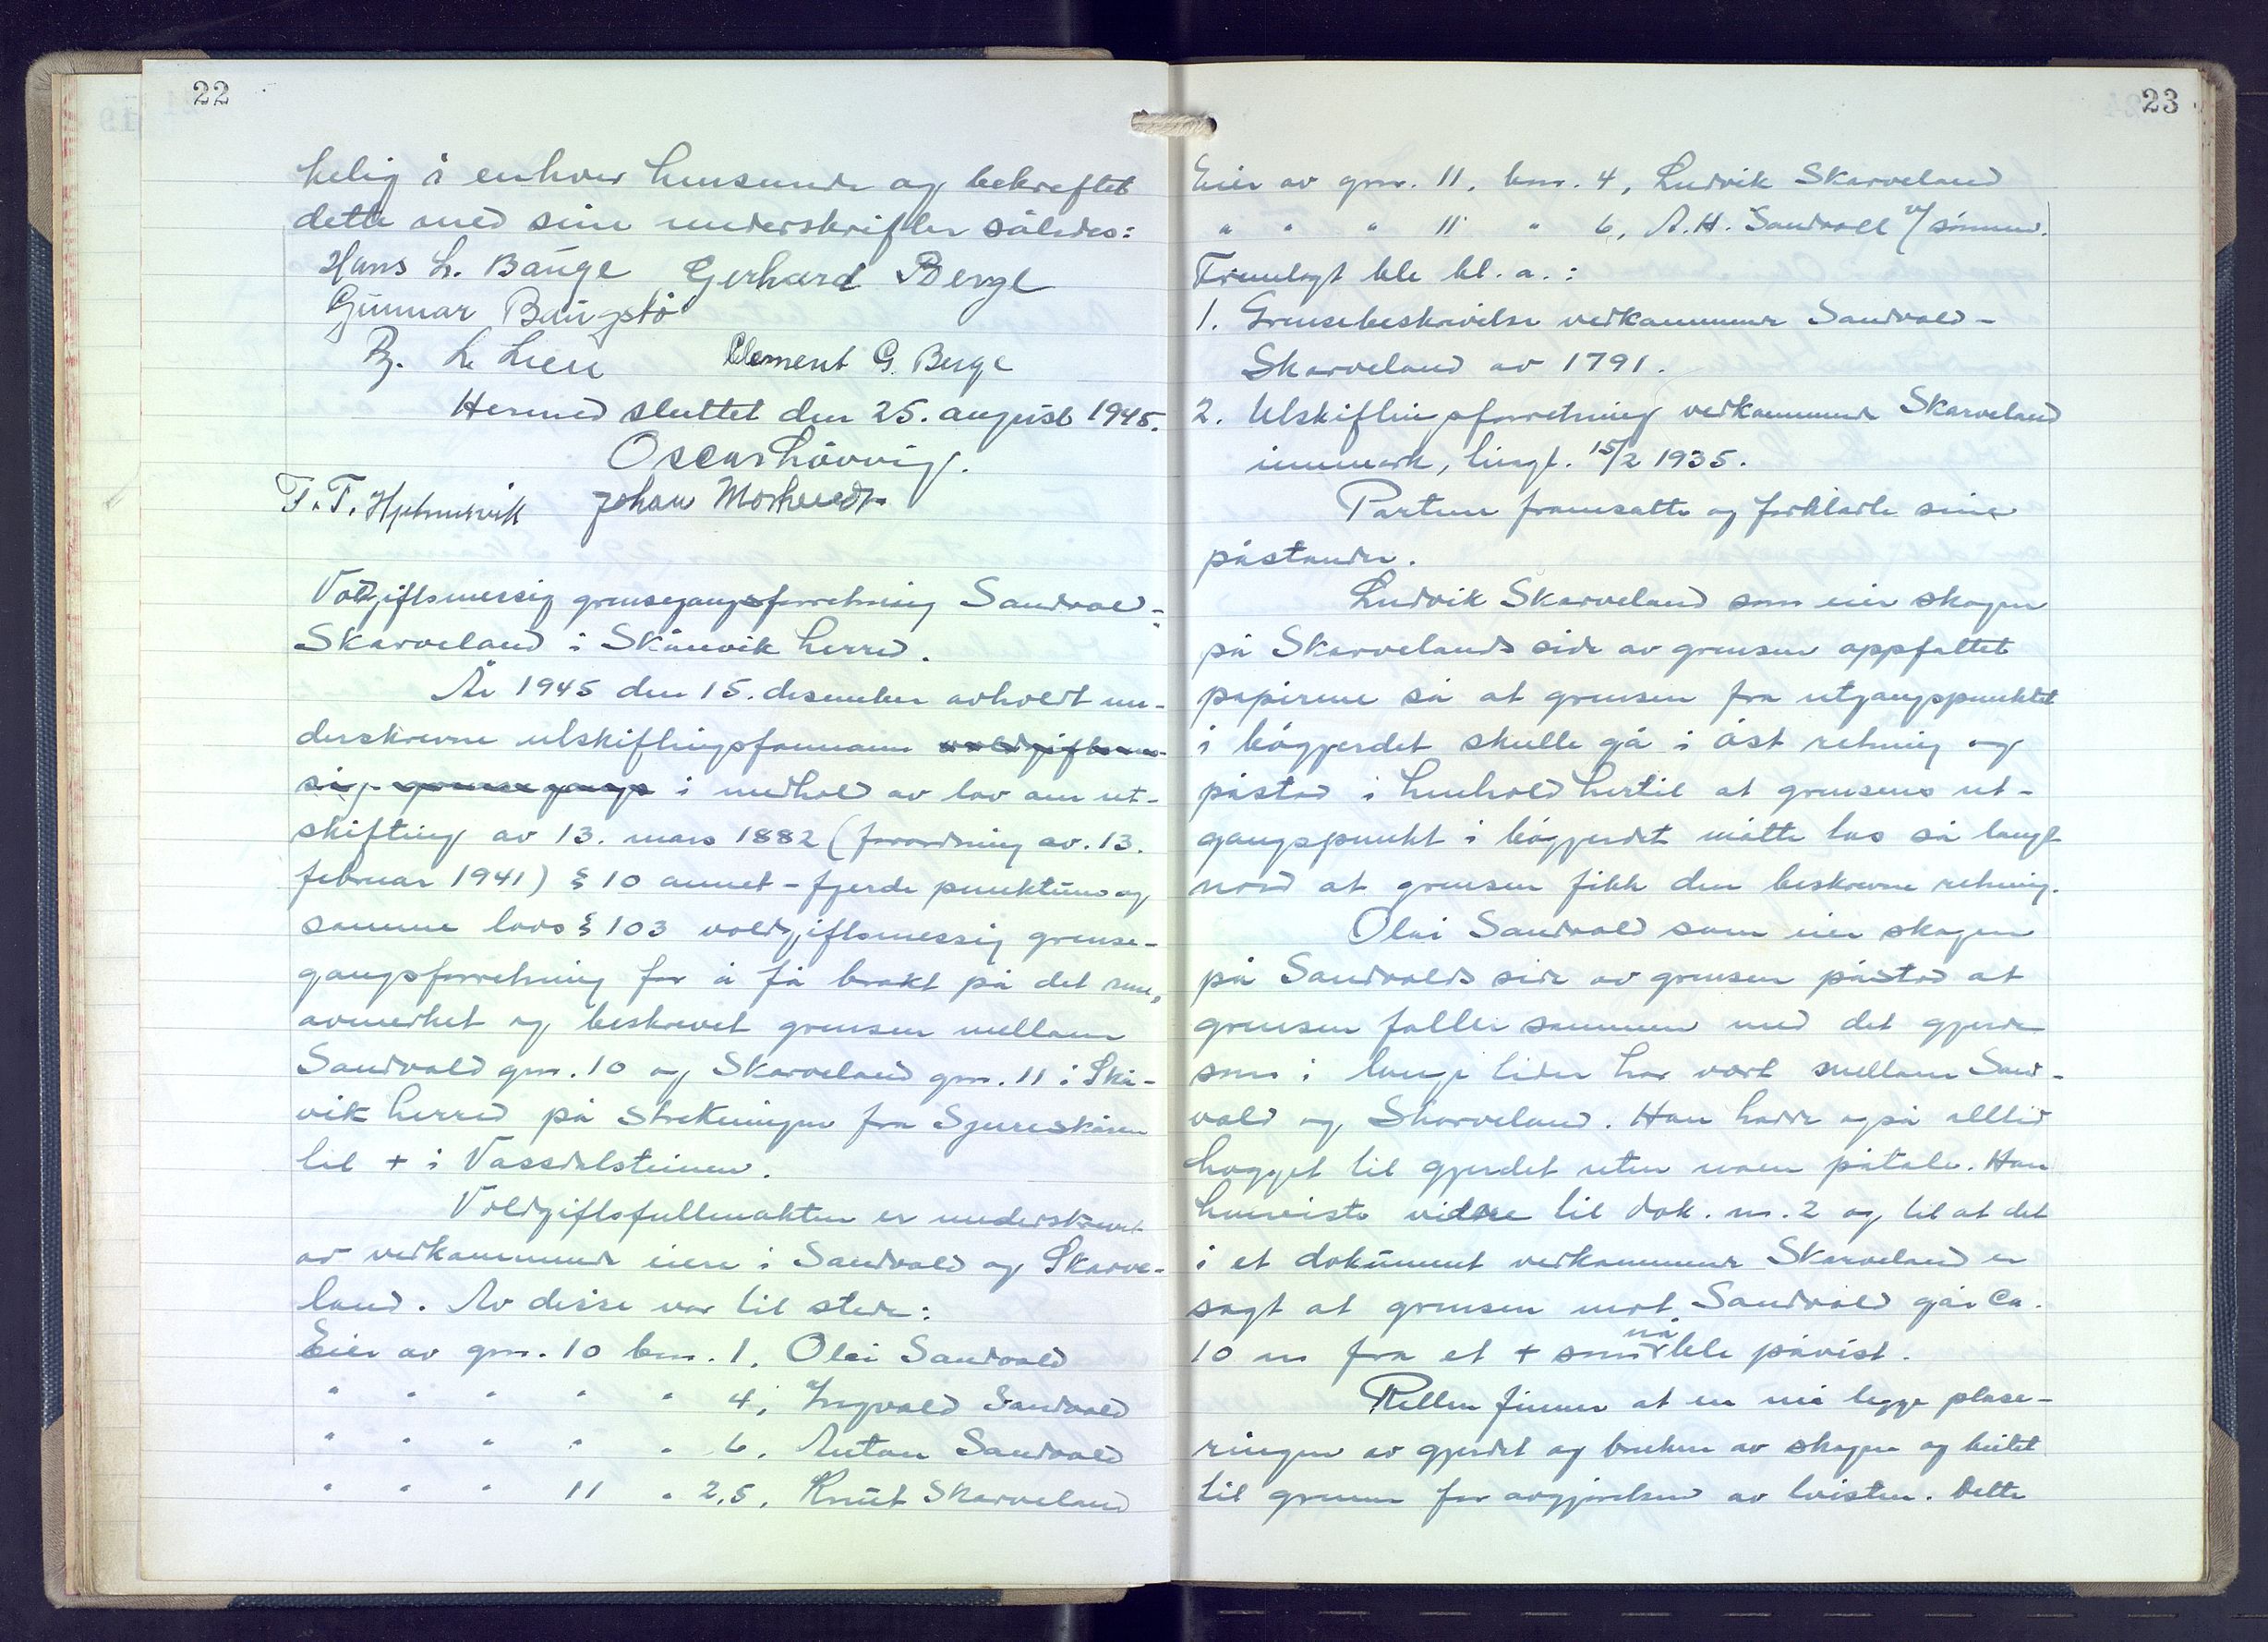 22
helig i enhver henseende og bekreftet
dette med sine underskrifter således:
Hans L. Bauge Gerhard Berge
Gunnar Baugstø
L. Lien Clement G. Berge
Hermed sluttet den 25. august 1945.
Oscar Løvvig.
T. T. Hjelmervik Johan
Voldgiftsmessig grensegangsforretning Sandvold-
Skarveland i Skånevik herred.
År 1945 den 15. desember avholdt un-
derskrevne utskiftningsformann voldgiftsmes-
sig grensegangs i medhold av lov om ut-
skifting av 13. mars 1882 (forordning av 13.
februar 1941) § 10 annet - fjerde punktum og
samme lovs § 103 voldgiftsmessig grense-
gangsforretning for å få brakt på det rene,
avmerket og beskrevet grensen mellom
Sandvold gnr. 10 og Skarveland gnr. 11 i Skå-
vik herred på strekningen fra Sjureskåren
til + i Vassdalsteinen.
Voldgiftsfullmakten er underskrevet
av vedkommende eiere i Sandvold og Skarve-
land. Av disse var til stede:
Eier av gnr. 10 bnr. 1, Olai Sandvold
" " " " " 4, Ingvald Sandvold
" " " " " 6, Anton Sandvold
" " " 11 " 2,5, Knut Skarveland
23
Eier av gnr. 11, bnr. 4, Ludvik Skarveland
" " " 11 " 6, A. H. Sandvoll v/ sønnen.
Fremlagt ble bl. a.:
1. Grensebeskrivelse vedkommende Sandvold-
Skarveland av 1791.
2. Utskiftningsforretning vedkommende Skarveland
innmark, tingl. 15/2 1935.
Partene framsatte og forklarte sine
påstander.
Ludvik Skarveland som eier skogen
på Skarvelands side av grensen oppfattet
papirene så at grensen fra utgangspunktet
i bøgjerdet skulle gå i øst retning og
påstod i henhold hertil at grensens ut-
gangspunkt i bøgjerdet måtte tas så langt
nord at grensen fikk den beskrevne retning.
Olai Sandvold som eier skogen
på Sandvolds side av grensen påstod at
grensen faller sammen med det gjerde
som i lange tider har vært mellom Sand-
vold og Skarveland. Han hadde også alltid
hogget til gjerdet uten noen påtale. Han
henviste videre til dok. nr. 2 og til at det
i et dokument vedkommende Skarveland er
sagt at grensen mot Sandvold går ca.
10 m fra et + som nå ble påvist.
Retten finner at en må legge plase-
ringen av gjerdet og bruken av skogen og beitet
til grunn for avgjørelsen av tvisten. Dette